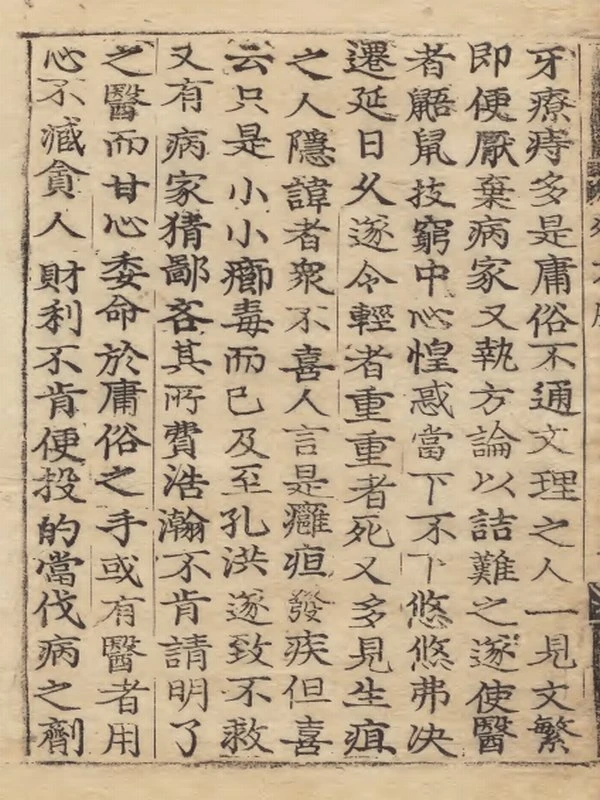 牙療痔多是庸俗不通文理之人一見文繁
即便厭棄病家又執方論以詰難之遂使醫
者鼯鼠技窮中心惶惑當下不下悠悠弗决
遷延日久遂令輕者重重者死又多見生疽
之人隱諱者衆不喜人言是癰疽發疾但喜
云只是小小癤毒而已及至孔洪遂致不救
又有病家猜鄙吝其所費浩瀚不肯請明了
之醫而甘心委命於庸俗之手或有醫者用
心不臧貪人財利不肯便投的當伐病之劑